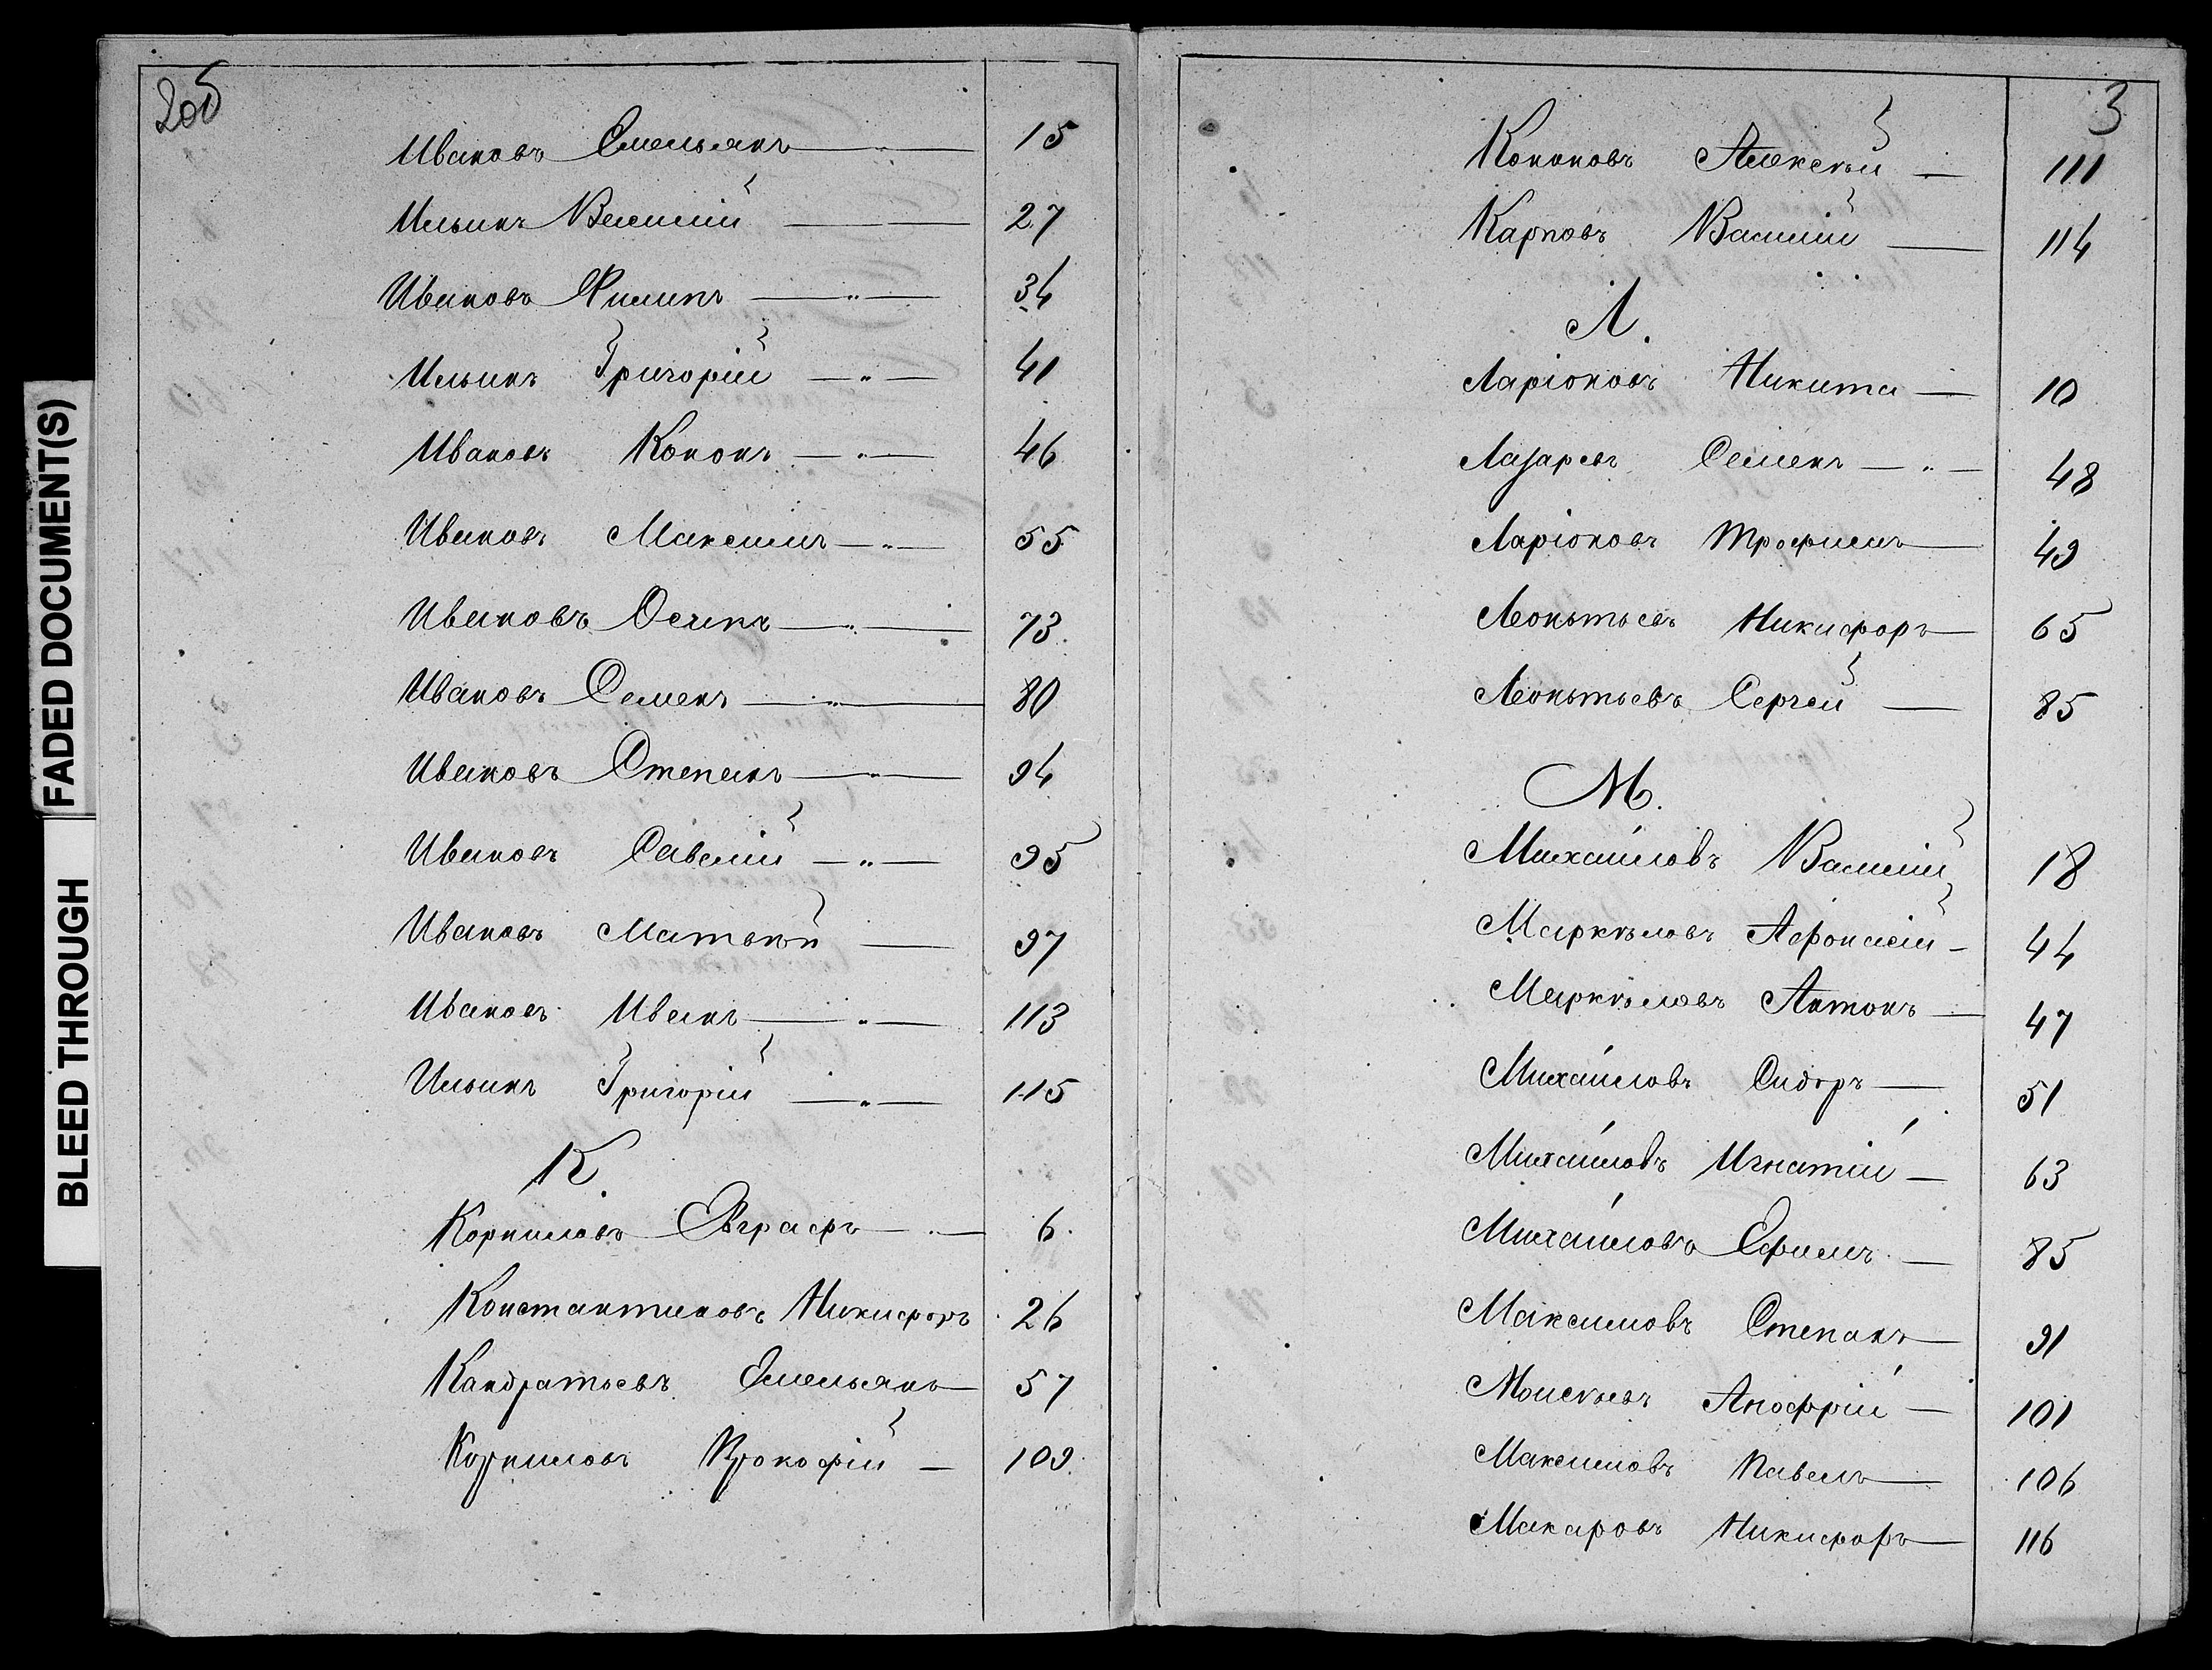 FADED DOCUMENT(S)
BLEED THROUGH
Ивановъ Емельянъ — 15
Ильинъ Василий — 27
Ивановъ Филипъ — „ — 34
Ильинъ Григорій — „ — 41
Ивановъ Кононъ — „ — 46
Ивановъ Максимъ — „ — 55
Ивановъ Осипъ — „ — 73
Ивановъ Семенъ — „ — 80
Ивановъ Степанъ — „ — 94
Ивановъ Савелій — „ — 95
Ивановъ Матвѣй — 97
Ивановъ Иванъ — „ — 113
Ильинъ Григорій — „ — 115
К.
Корниловъ Евграфъ — 6
Константиновъ Никифоръ 26
Кандратьевъ Емельянъ — 57
Корниловъ Прокофій — 109
3
Кононовъ Алексѣй — 111
Карповъ Василій — 114
Л.
Ларіоновъ Никита — 10
Лазаревъ Семенъ — „ — 48
Ларіоновъ Трофимъ — 49
Леонтьевъ Никифоръ — 65
Леонтьевъ Сергей — 85
М.
Михаиловъ Василій 18
Маркѣловъ Афонасій — 44
Маркѣловъ Антонъ — 47
Михаиловъ Сидоръ — 51
Михаиловъ Игнатій — 63
Михаиловъ Ефимъ — 85
Максимовъ Степанъ — 91
Моисѣевъ Анофрій — 101
Максимовъ Павелъ — 106
Макаровъ Никифоръ — 116